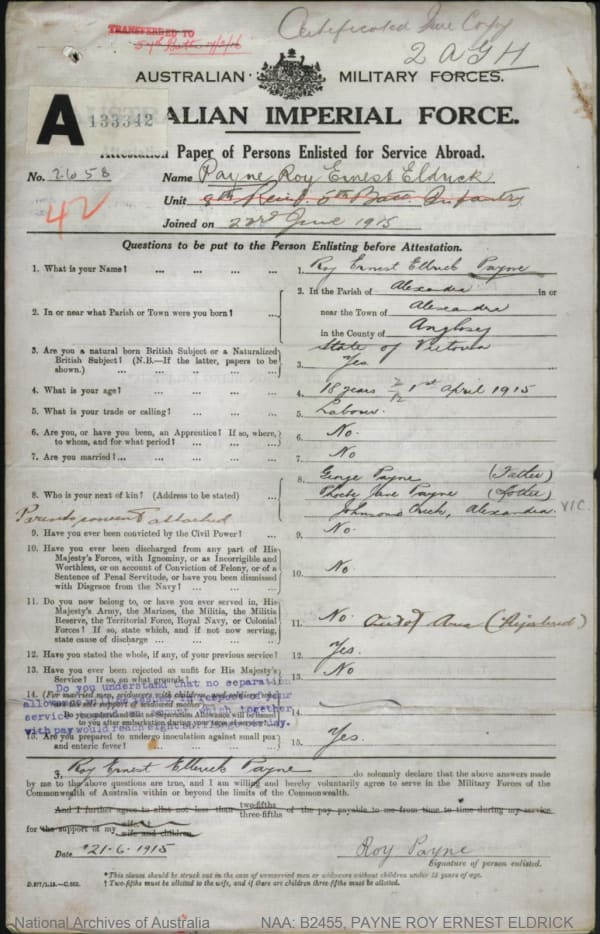 TRANSFERRED TO
57th Battn
Certificated True Copy
2 AGH
AUSTRALIAN MILITARY FORCES.
A 133342
ALIAN IMPERIAL FORCE.
Attestation Paper of Persons Enlisted for Service Abroad.
No. 2658 Name Payne Roy Ernest Eldrick
42
Unit 8th Reinf 5th Batt Infantry
Joined on 22nd June 1915
Questions to be put to the Person Enlisting before Attestation.
1. What is your Name? ... ... ... ... 1. Roy Ernest Eldrick Payne
2. In or near what Parish or Town were you born? ... 2. In the Parish of Alexandra in or
near the Town of Alexandra
in the County of Anglesey
State of Victoria
3. Are you a natural born British Subject or a Naturalized British Subject? (N.B.—If the latter, papers to be shown.) ... ... ... ... 3. Yes
4. What is your age? ... ... ... ... 4. 18 years 2/12 1st April 1915
5. What is your trade or calling? ... ... ... 5. Laborer.
6. Are you, or have you been, an Apprentice? If so, where, to whom, and for what period? ... ... ... 6. No.
7. Are you married? ... ... ... ... 7. No
8. Who is your next of kin? (Address to be stated) ... 8. George Payne (Father)
Phoebe Jane Payne (Mother)
Johnsons Creek, Alexandra. VIC.
Parents consent attached
9. Have you ever been convicted by the Civil Power? ... 9. No.
10. Have you ever been discharged from any part of His Majesty's Forces, with Ignominy, or as Incorrigible and Worthless, or on account of Conviction of Felony, or of a Sentence of Penal Servitude, or have you been dismissed with Disgrace from the Navy? ... ... ... 10. No.
11. Do you now belong to, or have you ever served in, His Majesty's Army, the Marines, the Militia, the Militia Reserve, the Territorial Force, Royal Navy, or Colonial Forces? If so, state which, and if not now serving, state cause of discharge ... ... ... 11. No. Out of Area (Registered)
12. Have you stated the whole, if any, of your previous service? 12. Yes.
13. Have you ever been rejected as unfit for His Majesty's Service? If so, on what grounds? ... 13. No
14. (For married men, widowers with children, and soldiers who are the sole support of widowed mother)
Do you understand that no Separation Allowance will be issued to you after embarkation during your term of service? 14.
Do you understand that no separation
allowance
service
with pay would reach eight day.
15. Are you prepared to undergo inoculation against small pox and enteric fever? ... ... ... ... 15. Yes.
I, Roy Ernest Eldrick Payne do solemnly declare that the above answers made
by me to the above questions are true, and I am willing and hereby voluntarily agree to serve in the Military Forces of the
Commonwealth of Australia within or beyond the limits of the Commonwealth.
And I further agree to allot not less than two-fifths three-fifths of the pay payable to me from time to time during my service
for the support of my wife. wife and children.
Date 21-6-1915 Roy Payne
Signature of person enlisted.
* This clause should be struck out in the case of unmarried men or widowers without children under 18 years of age.
† Two-fifths must be allotted to the wife, and if there are children three-fifths must be allotted.
National Archives of Australia NAA: B2455, PAYNE ROY ERNEST ELDRICK